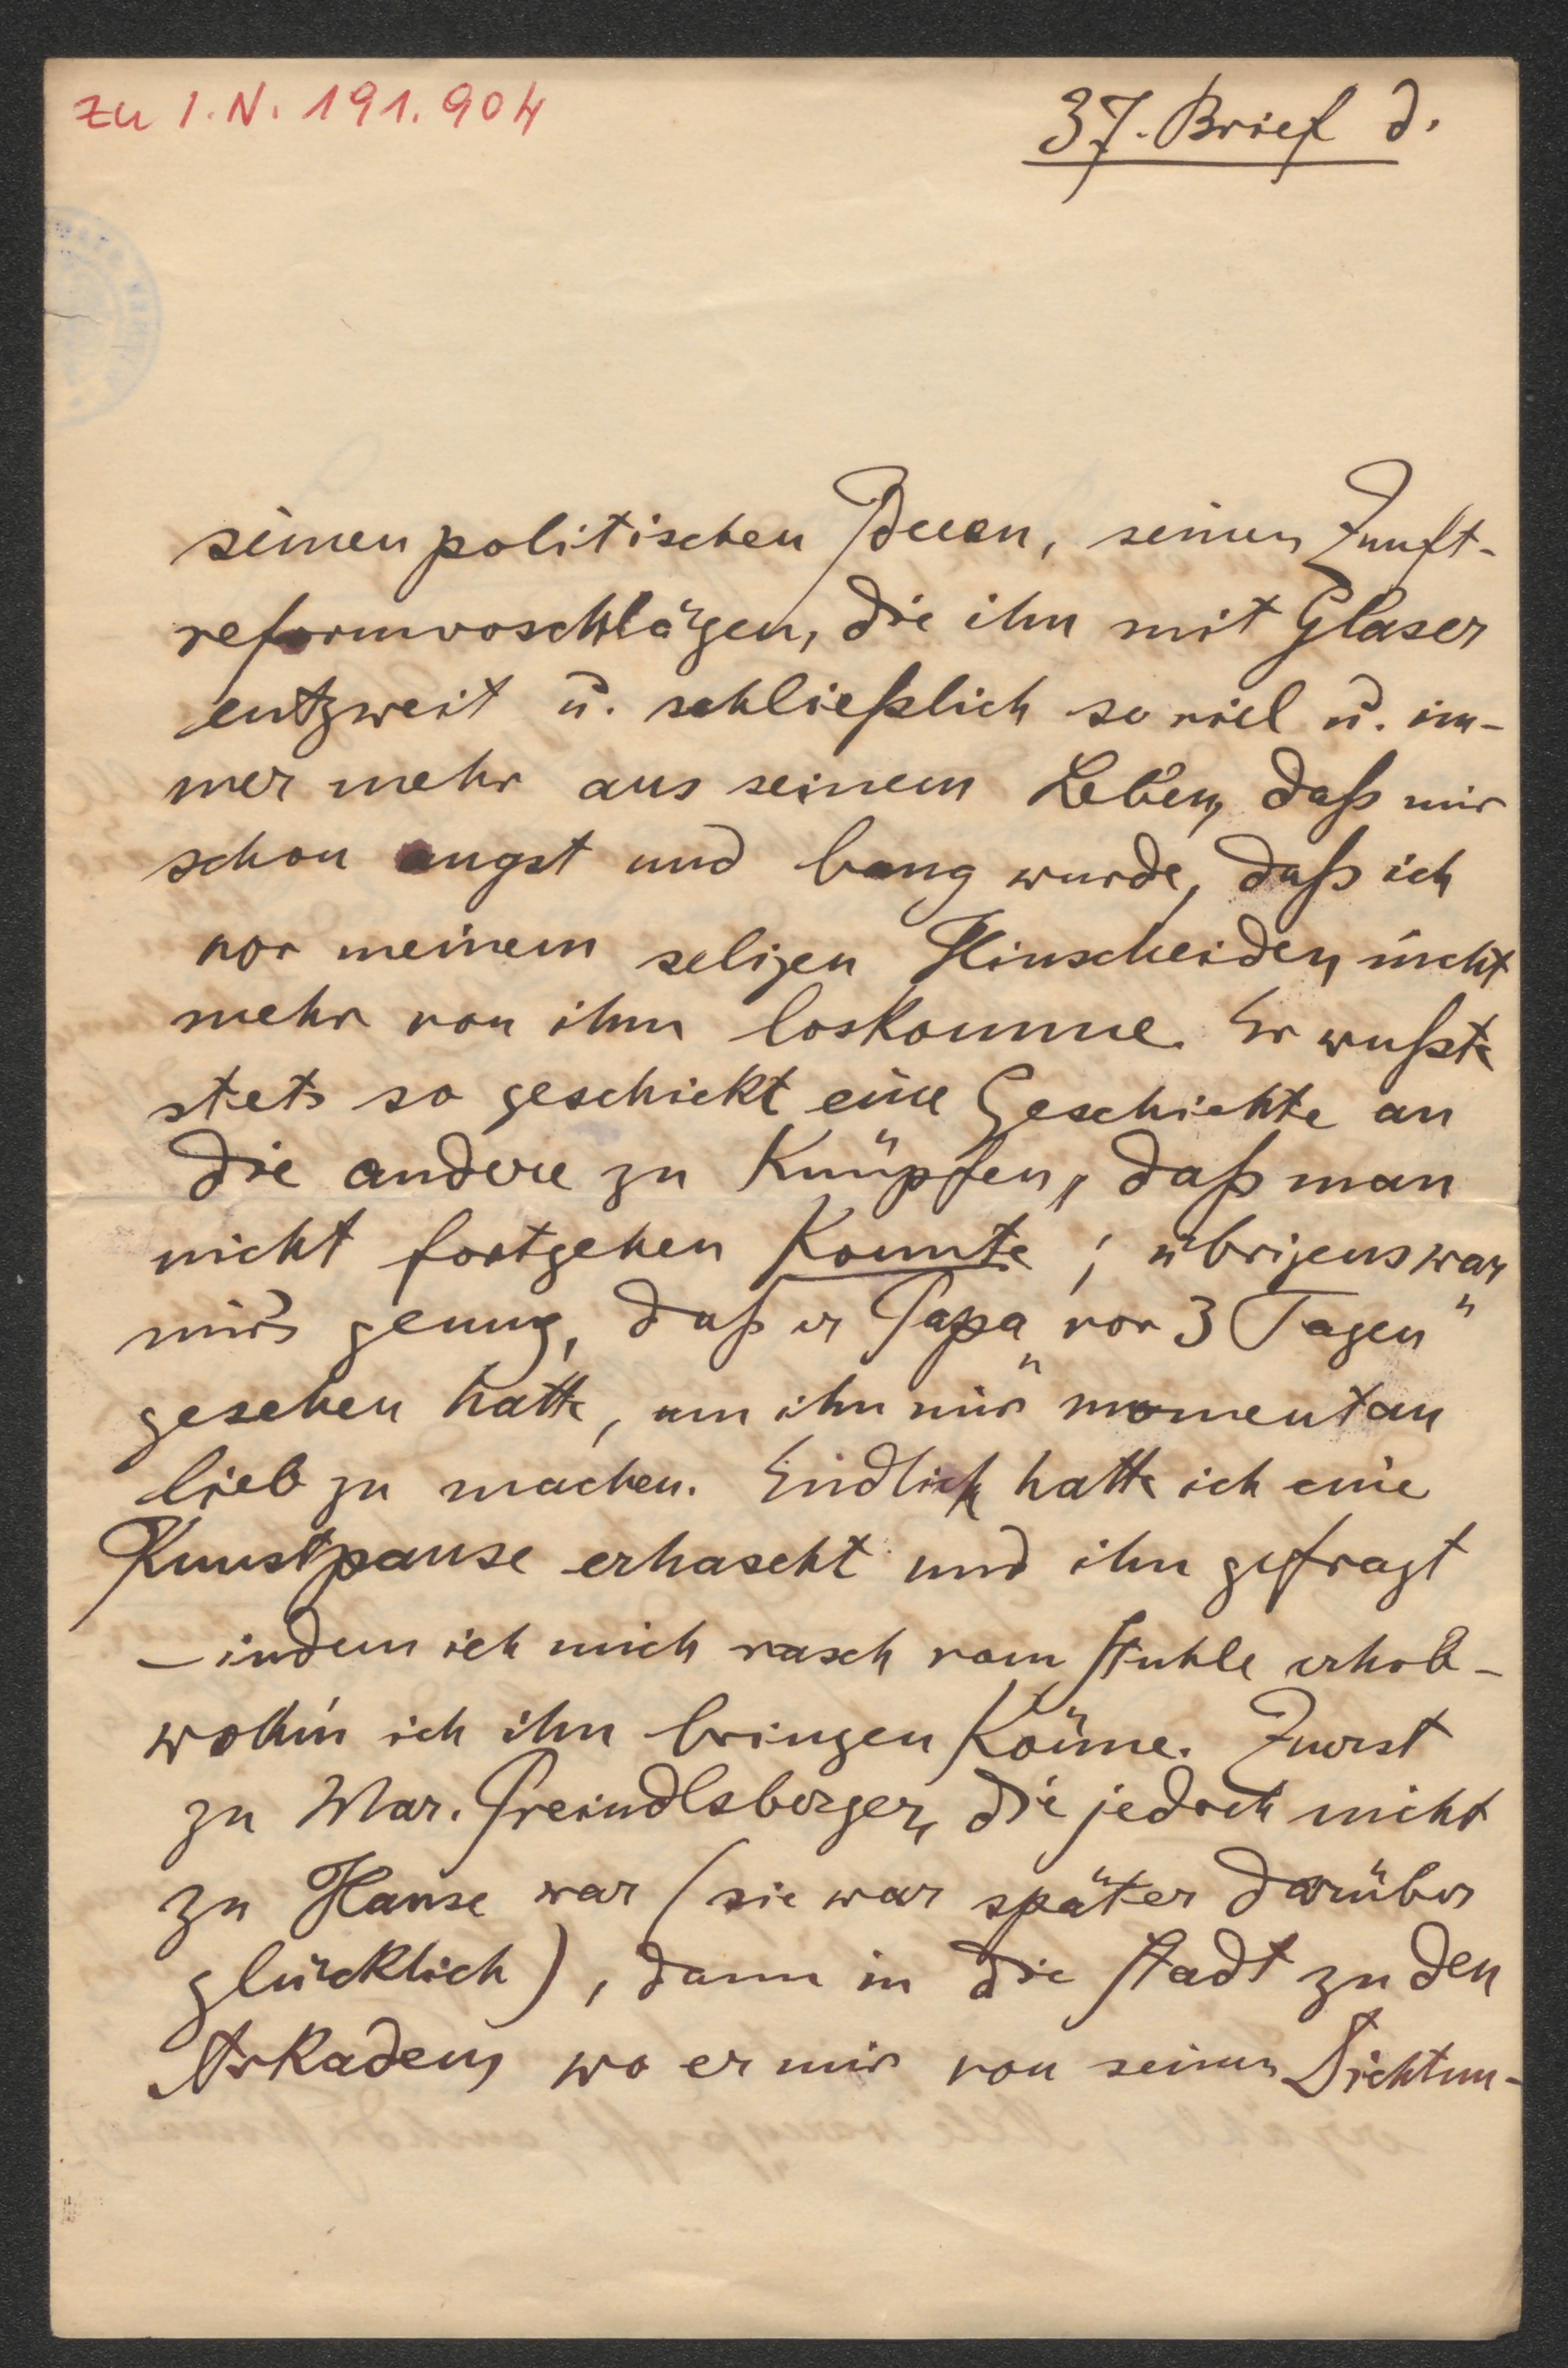 zu I.N. 191.904
37. Brief d.
seinen politischen Ideen, seinen Zunft-
reformvoschlägen, die ihn mit Glaser
entzweit u. schließlich so viel u. im-
mer mehr aus seinem Leben, daß mir
schon angst und bang wurde, daß ich
vor meinem seligen Hinscheiden nicht
mehr von ihm loskomme. Er wußte
stets so geschickt eine Geschichte an
die andere zu knüpfen, daß man
nicht fortgehen konnte; übrigens war
mir's genug, daß er Papa „vor 3 Tagen“
gesehen hatte, um ihn mir momentan
lieb zu machen. Endlich hatte ich eine
Kunstpause erhascht und ihn gefragt
– indem ich mich rasch vom Stuhle erhob –
wohin ich ihn bringen könne. Zuerst
zu Mar. Preindlsberger, die jedoch nicht
zu Hause war (sie war später darüber
glücklich), dann in die Stadt zu den
Arkaden, wo er mir von seinen Dichtun-